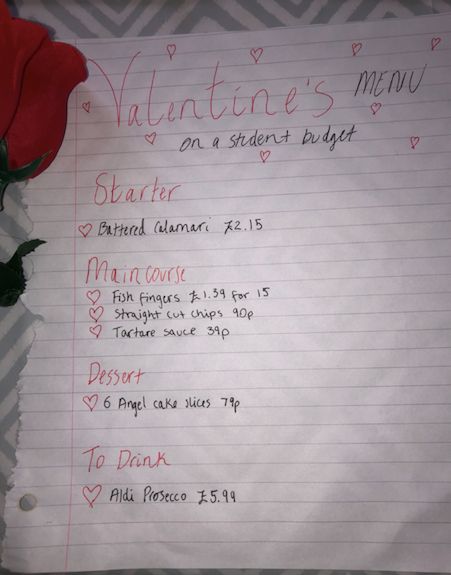 Valentine's MENU
on a student budget
Starter
Battered Calamari £2.15
Main course
Fish fingers £1.39 for 15
Straight cut chips 90p
Tartare sauce 39p
Dessert
6 Angel cake slices 79p
To Drink
Aldi Prosecco £5.99